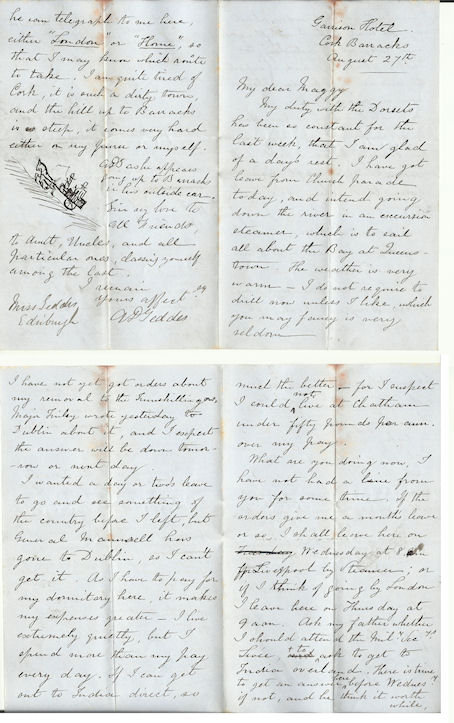 Garrison Hotel
Cork Barracks
August 27th
My dear Maggy
My duty with the Dorsets
has been so constant for the
last week, that I am glad
of a day's rest. I have got
leave from Church parade
today, and intend going
down the river in an excursion
steamer, which is to sail
all about the Bay at Queens-
town. The weather is very
warm — I do not require to
drill now unless I like, which
you may fancy is very
seldom
I have not yet got orders about
my removal to the Inniskillings,
Major Finley wrote yesterday to
Dublin about it, and I expect
the answer will be down tomor-
-row or next day.
I wanted a day or two's leave
to go and see something of
the country before I left, but
General Maunsell has
gone to Dublin, so I can't
get it. As I have to pay for
my dormitory here, it makes
my expenses greater — I live
extremely quietly, but I
spend more than my pay
every day. If I can get
out to India direct, so
much the better — for I expect
I could not live at Chatham
under fifty pounds per ann.
over my pay.
What are you doing now, I
have not had a line from
you for some time. If the
orders give me a month's leave
or so, I shall leave here on
Wednesday at 8
for Liverpool by steamer; or
if I think of going by London
I leave here on Thursday at
9 a.m. Ask my father whether
I should attend the Mily
ask to get to
India overland. There is time
to get an answer here before Wednesy
if not, and he think it worth
while,
he can telegraph to me here,
either "London" or "Home", so
that I may know which route
to take. I am quite tired of
Cork, it is such a dirty town,
and the hill up to Barracks
is so steep, it comes very hard
either on my purse or myself.
A dash appears
going up to Barracks
in his outside car.
Give my love to
all Friends,
to Aunt, Uncles, and all
particular ones, classing yourself
among the last.
I remain
Yours affect
A D Geddes
Miss Geddes
Edinburgh